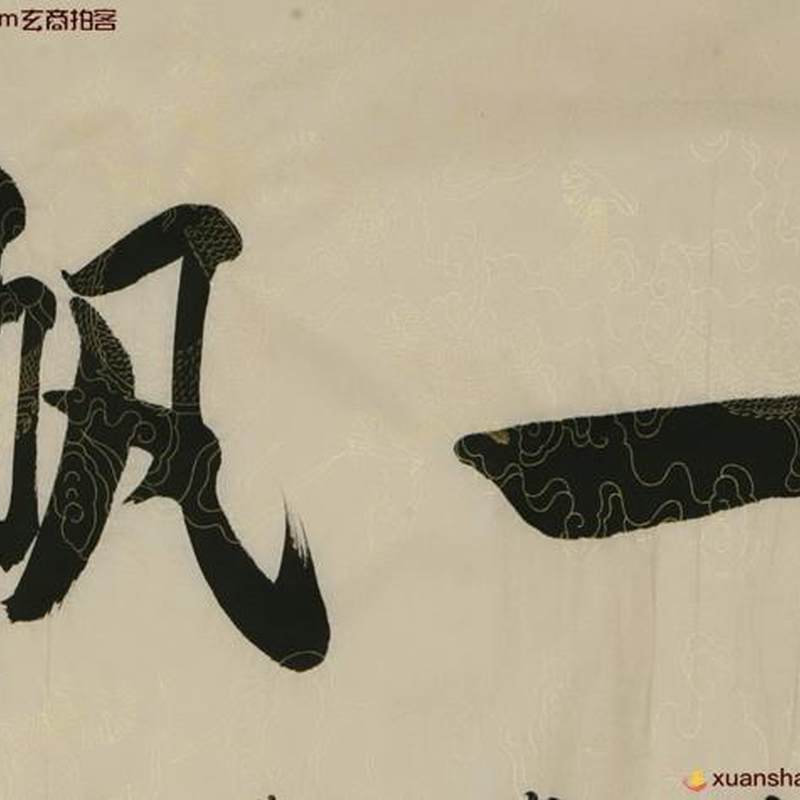 m玄商拍客
一帆
xuansha